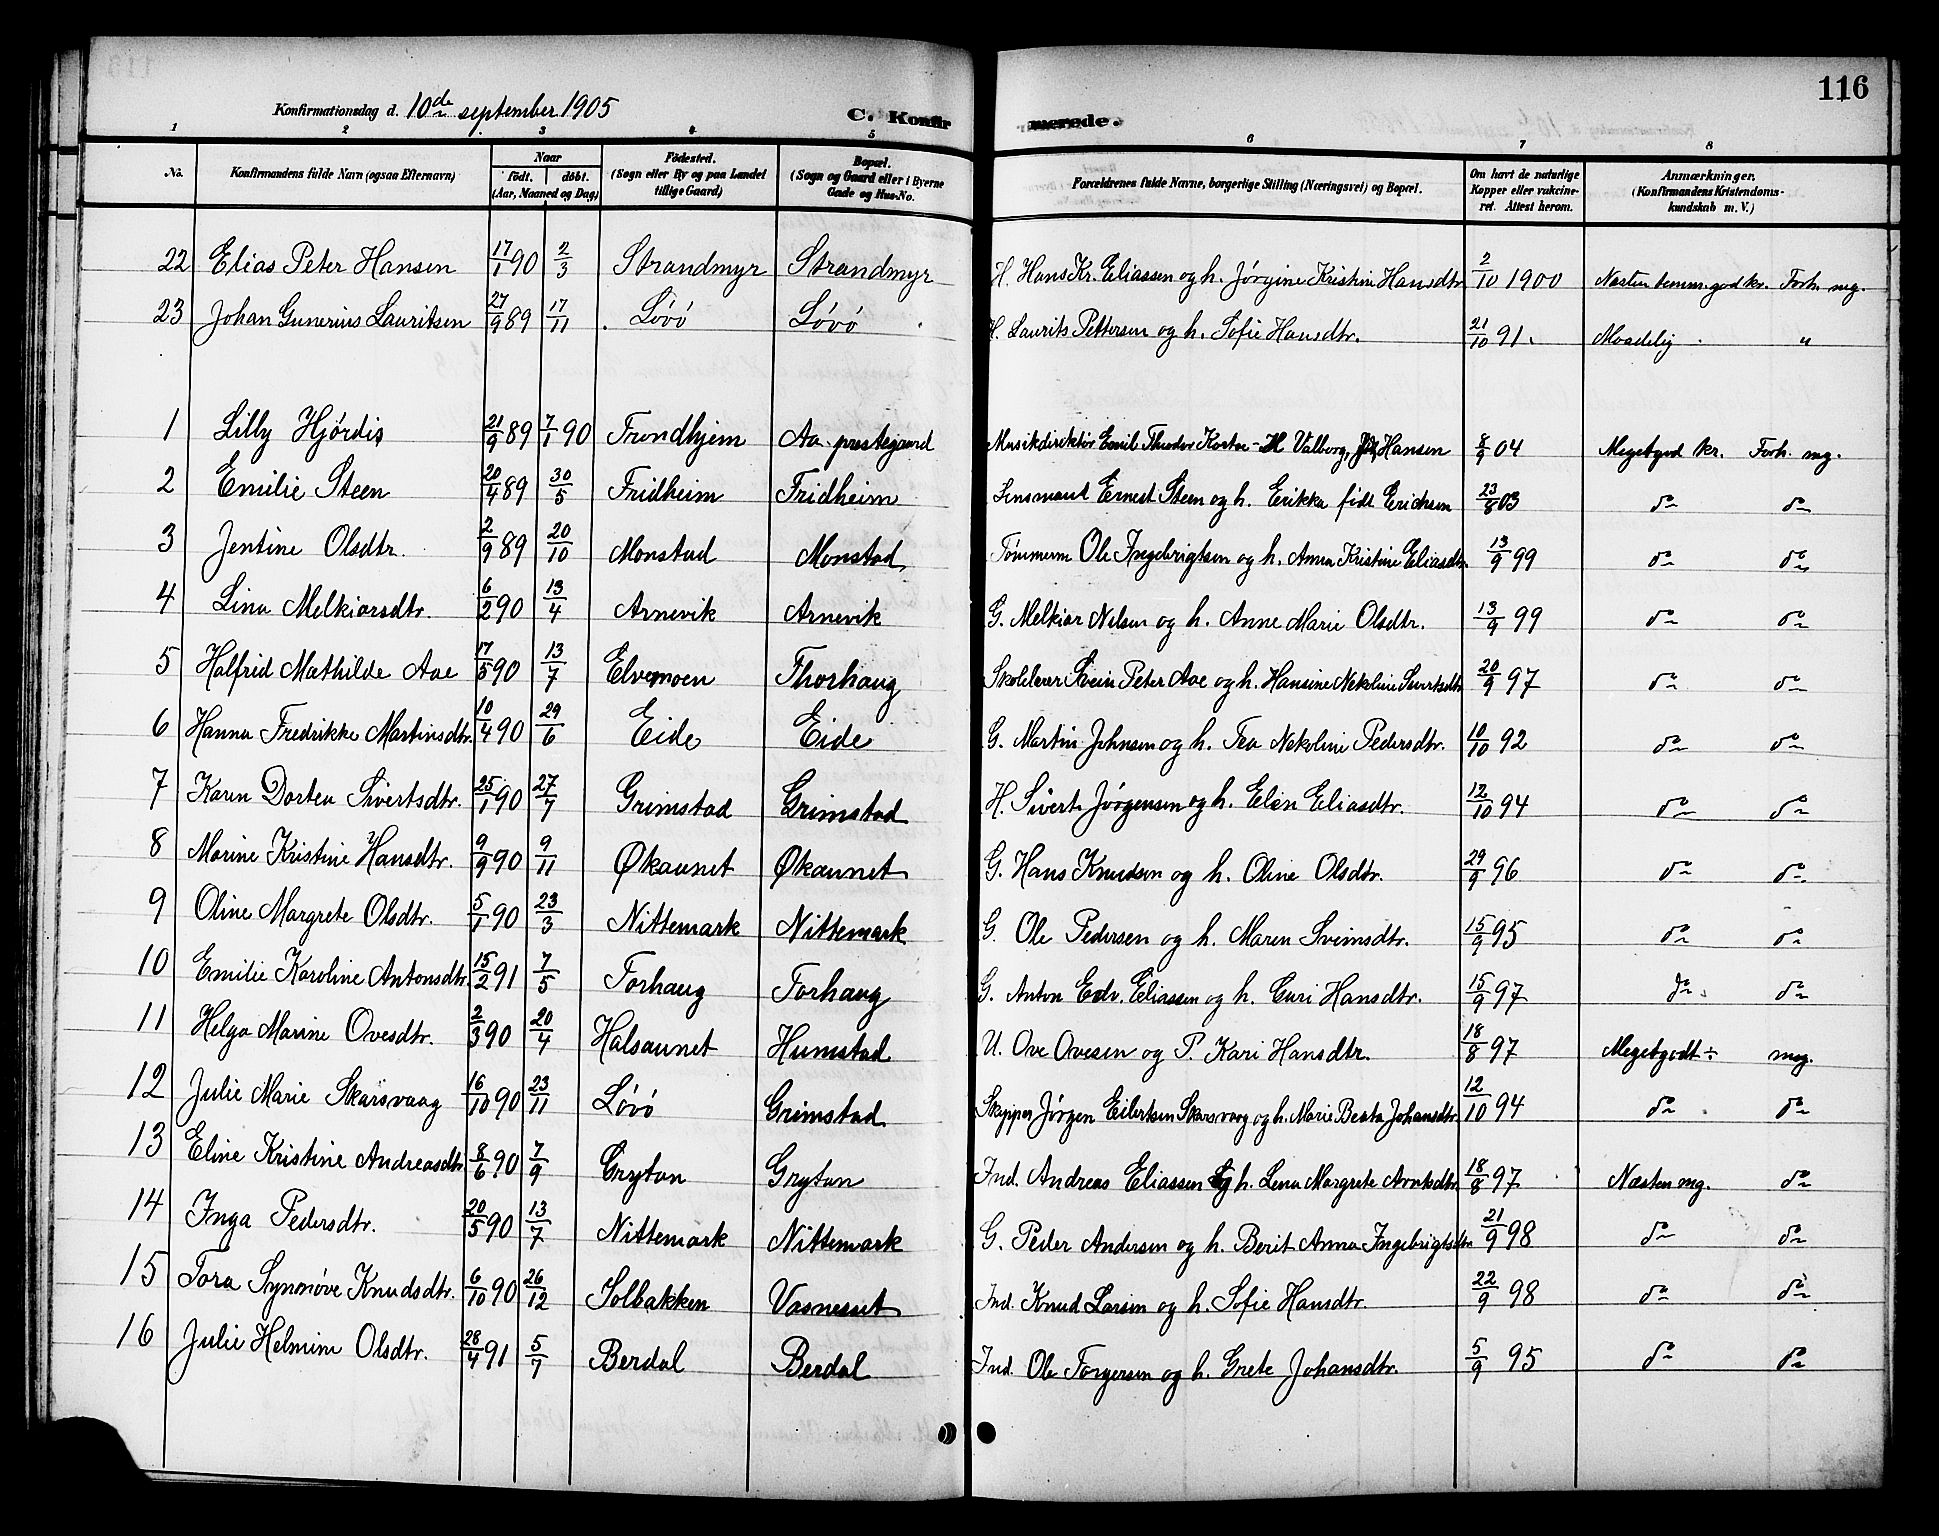 116
Konfirmationsdag d. 10de september 1905 C. Konfirmerede.
1 2 3 4 5 6 7 8
No. Konfirmandens fulde Navn (ogsaa Efternavn) Naar født. døbt. (Aar, Maaned og Dag) Fødested. (Sogn eller By og paa Landet tillige Gaard) Bopæl. (Sogn og Gaard eller i Byerne Gade og Hus-No. Forældrenes fulde Navne, borgerlige Stilling (Næringsvei) og Bopæl. Om havt de naturlige Kopper eller vakcineret. Attest herom. Anmærkninger. (Konfirmandens Kristendomskundskab m. V.)
22 Elias Peter Hansen 17/1 90 2/3 Strandmyr Strandmyr H. Hans Kr. Eliassen og h. Jørgine Kristine Hansdtr. 2/10 1900 Næsten temm. god kr. Forh. mg.
23 Johan Gunerius Lauritsen 27/9 89 17/11 Løvø Løvø H. Laurits Pettersen og h. Sofie Hansdtr. 21/10 91. Maadelig "
1 Lilly Hjørdis 21/9 89 7/1 90 Trondhjem Aa prestegaard Musikdirektør Emil Theodor Valborg Hansen 8/9 04 Megetgod kr. Forh. mg.
2 Emilie Steen 20/4 89 30/5 Fridheim Fridheim Lensmand Ernest Steen og h. Erikka født Erichsen 23/8 03 do do
3 Jentine Olsdtr. 2/9 89 20/10 Monstad Monstad Tømmerm Ole Ingebrigtsen og h. Anna Kristine Eliasdtr. 13/9 99 do do
4 Lina Melkiorsdtr. 6/2 90 13/4 Arnevik Arnevik G. Melkior Nilsen og h. Anne Marie Olsdtr. 13/9 99 do do
5 Halfrid Mathilde Aae 17/5 90 13/7 Elvemoen Thorhaug Skolelærer Svein Peter Aae og h. Hansine Nekoline Sivertsdtr 20/9 97 do do
6 Hanna Fredrikke Martinsdtr. 10/4 90 29/6 Eide Eide G. Martin Johnsen og h. Tea Nekoline Pedersdtr. 10/10 92 do do
7 Karen Dortea Sivertsdtr. 25/1 90 27/7 Grimstad Grimstad H. Sivert Jørgensen og h. Elen Eliasdtr. 12/10 94 do do
8 Marine Kristine Hansdtr. 9/9 90 9/11 Økaunet Økaunet G. Hans Knudsen og h. Oline Olsdtr. 29/9 96 do do
9 Oline Margrete Olsdtr. 5/1 90 23/3 Nittemark Nittemark G. Ole Pedersen og h. Maren Sveinsdtr. 15/9 95 do do
10 Emilie Karoline Antonsdtr. 15/2 91 7/5 Torhaug Torhaug G. Anton Edv. Eliassen og h. Guri Hansdtr. 15/9 97 do do
11 Helga Marine Ovesdtr. 2/3 90 20/4 Halsaunet Humstad U. Ove Ovesen og P. Kari Hansdtr. 18/8 97 Megetgodt ÷ mg.
12 Julie Marie Skarsvaag 16/10 90 23/11 Løvø Grimstad Skipper Jørgen Eilertsen Skarsvaag og h. Marie Beata Johansdtr. 12/10 94 do do
13 Eline Kristine Andreasdtr 8/6 90 7/9 Grytan Grytan Ind. Andreas Eliassen og h. Lena Margrete Arntsdtr. 18/8 97 Næsten mg. do
14 Inga Pedersdtr. 20/5 90 13/7 Nittemark Nittemark G. Peder Andersen og h. Berit Anna Ingebrigtsdtr 21/9 98 do do
15 Tora Synnøve Knudsdtr. 6/10 90 26/12 Solbakken Vasnesset Ind. Knud Larsen og h. Sofie Hansdtr. 22/9 98 do do
16 Julie Helmine Olsdtr. 28/4 91 5/7 Berdal Berdal Ind. Ole Torgersen og h. Grete Johansdtr. 5/9 95 do do